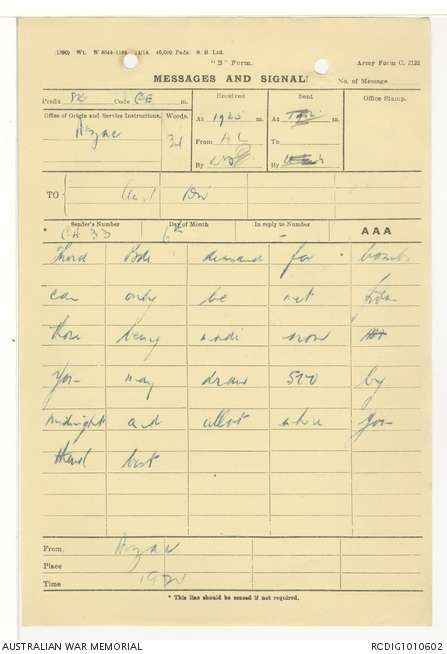 (1390) Wt. W 8044—1188. 11/14. 40,000 Pads. S. B. Ltd.
"B" Form. Army Form C. 2122
MESSAGES AND SIGNALS
No. of Message
Prefix Code m. Received Sent Office Stamp.
Office of Origin and Service Instructions. Words. At 1920 m. At m.
Anzac 32 From To
By By
TO Div
* Sender's Number Day of Month In reply to Number AAA
CA 33 6th -
Third Bde demand for bombs
can only be met from
those being made now
You may draw 570 by
midnight and allot where you
think best
From Anzac
Place
Time
* This line should be erased if not required.
AUSTRALIAN WAR MEMORIAL RCDIG1010602